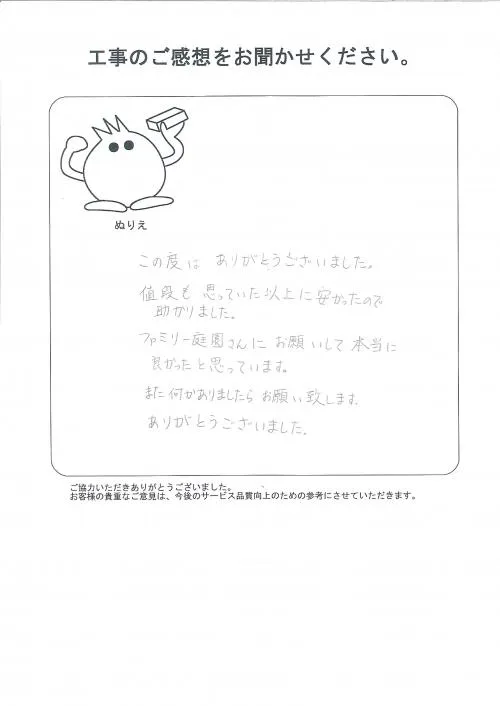 工事のご感想をお聞かせください。
ぬりえ
この度は ありがとうございました。
値段も 思っていた以上に安かったので
助かりました。
ファミリー庭園さんに お願いして 本当に
良かったと思っています。
また何かありましたら お願い致します.
ありがとうございました.
ご協力いただきありがとうございました。
お客様の貴重なご意見は、今後のサービス品質向上のための参考にさせていただきます。